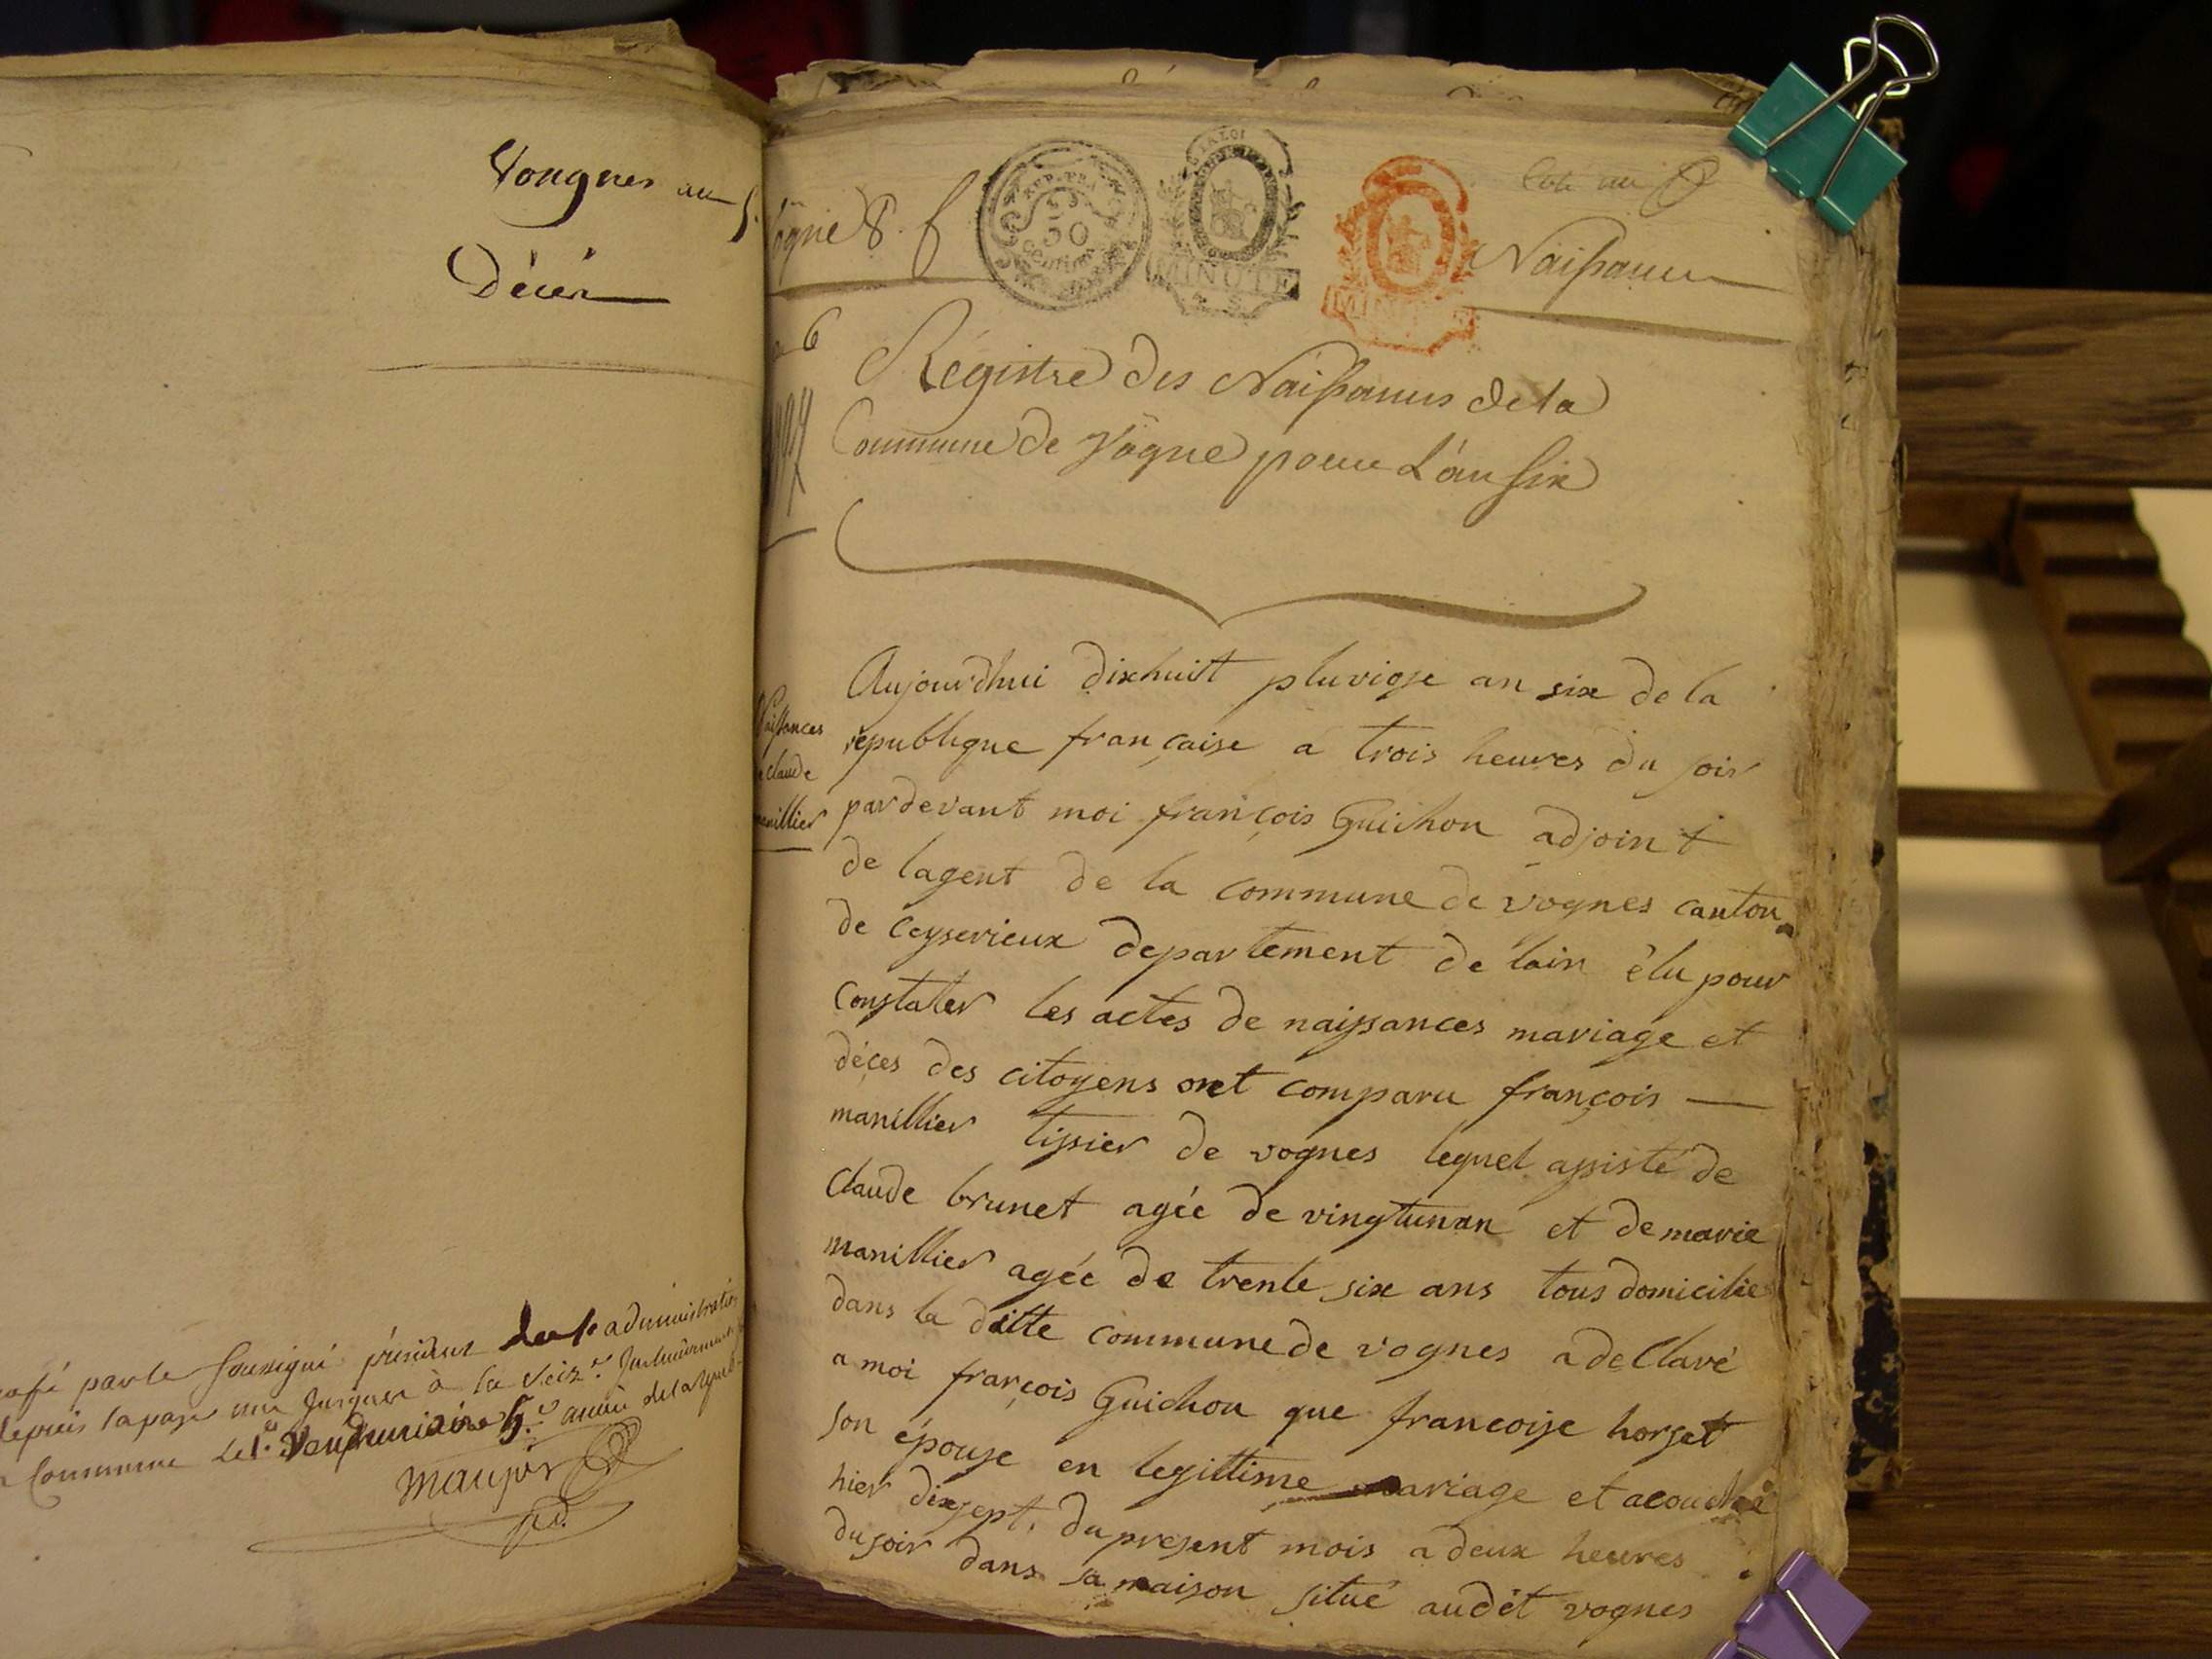 Vongnes an 5.
Décès
par le soussigné président de l'administration
depuis la page une jusques à la seiz.e
Commune le 1.er Vendemiaire 5.e année de la
Naissances
RÉP. FRA.
50
centimes
LA LOI
MINUTE
MINUTE
6
1797
Régistre des Naissances de la
Commune de Vögne pour L'an Six
Naissances
claude
manillier
Aujourdhui dixhuit pluviose an six de la
république française a trois heures du soir
pardevant moi françois Guichon adjoint
de lagent de la commune de vognes canton
de Ceyserieux departement de lain élu pour
Constater les actes de naissances mariage et
déces des citoyens ont comparu françois —
manillier tissier de vognes lequel assisté de
Claude brunet agée de vingtunan et de marie
manillier agée de trente six ans tous domicilie
dans la ditte commune de vognes a declaré
a moi françois Guichon que francoise horset
son épouse en legittime mariage et acouchée
hier dixsept. du present mois a deux heures
du soir dans sa maison situé audit vognes